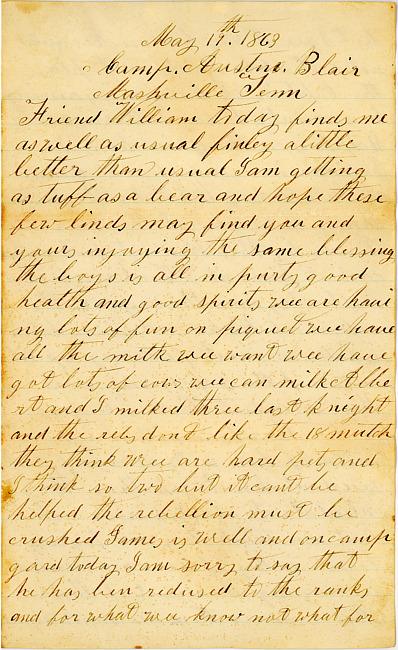 May 17th. 1863
Camp. Austin. Blair
Nashville Tenn
Friend William today finds me
as well as usual finley a little
better than usual I am getting
as tuff as a bear and hope these
few linds may find you and
yours injoying the same blessing
the boys is all in purty good
health and good spirits wee are havi
ng lots of fun on piquet wee have
all the milk wee want wee have
got lots of cows wee can milk Albe
rt and I milked three last knight
and the rebs dont like the 18 mutch
they think wee are hard pets and
I think so two but it cant be
helped the rebellion must be
crushed James is well and on camp
gard today I am sorry to say that
he has ben redused to the ranks
and for what wee know not what for